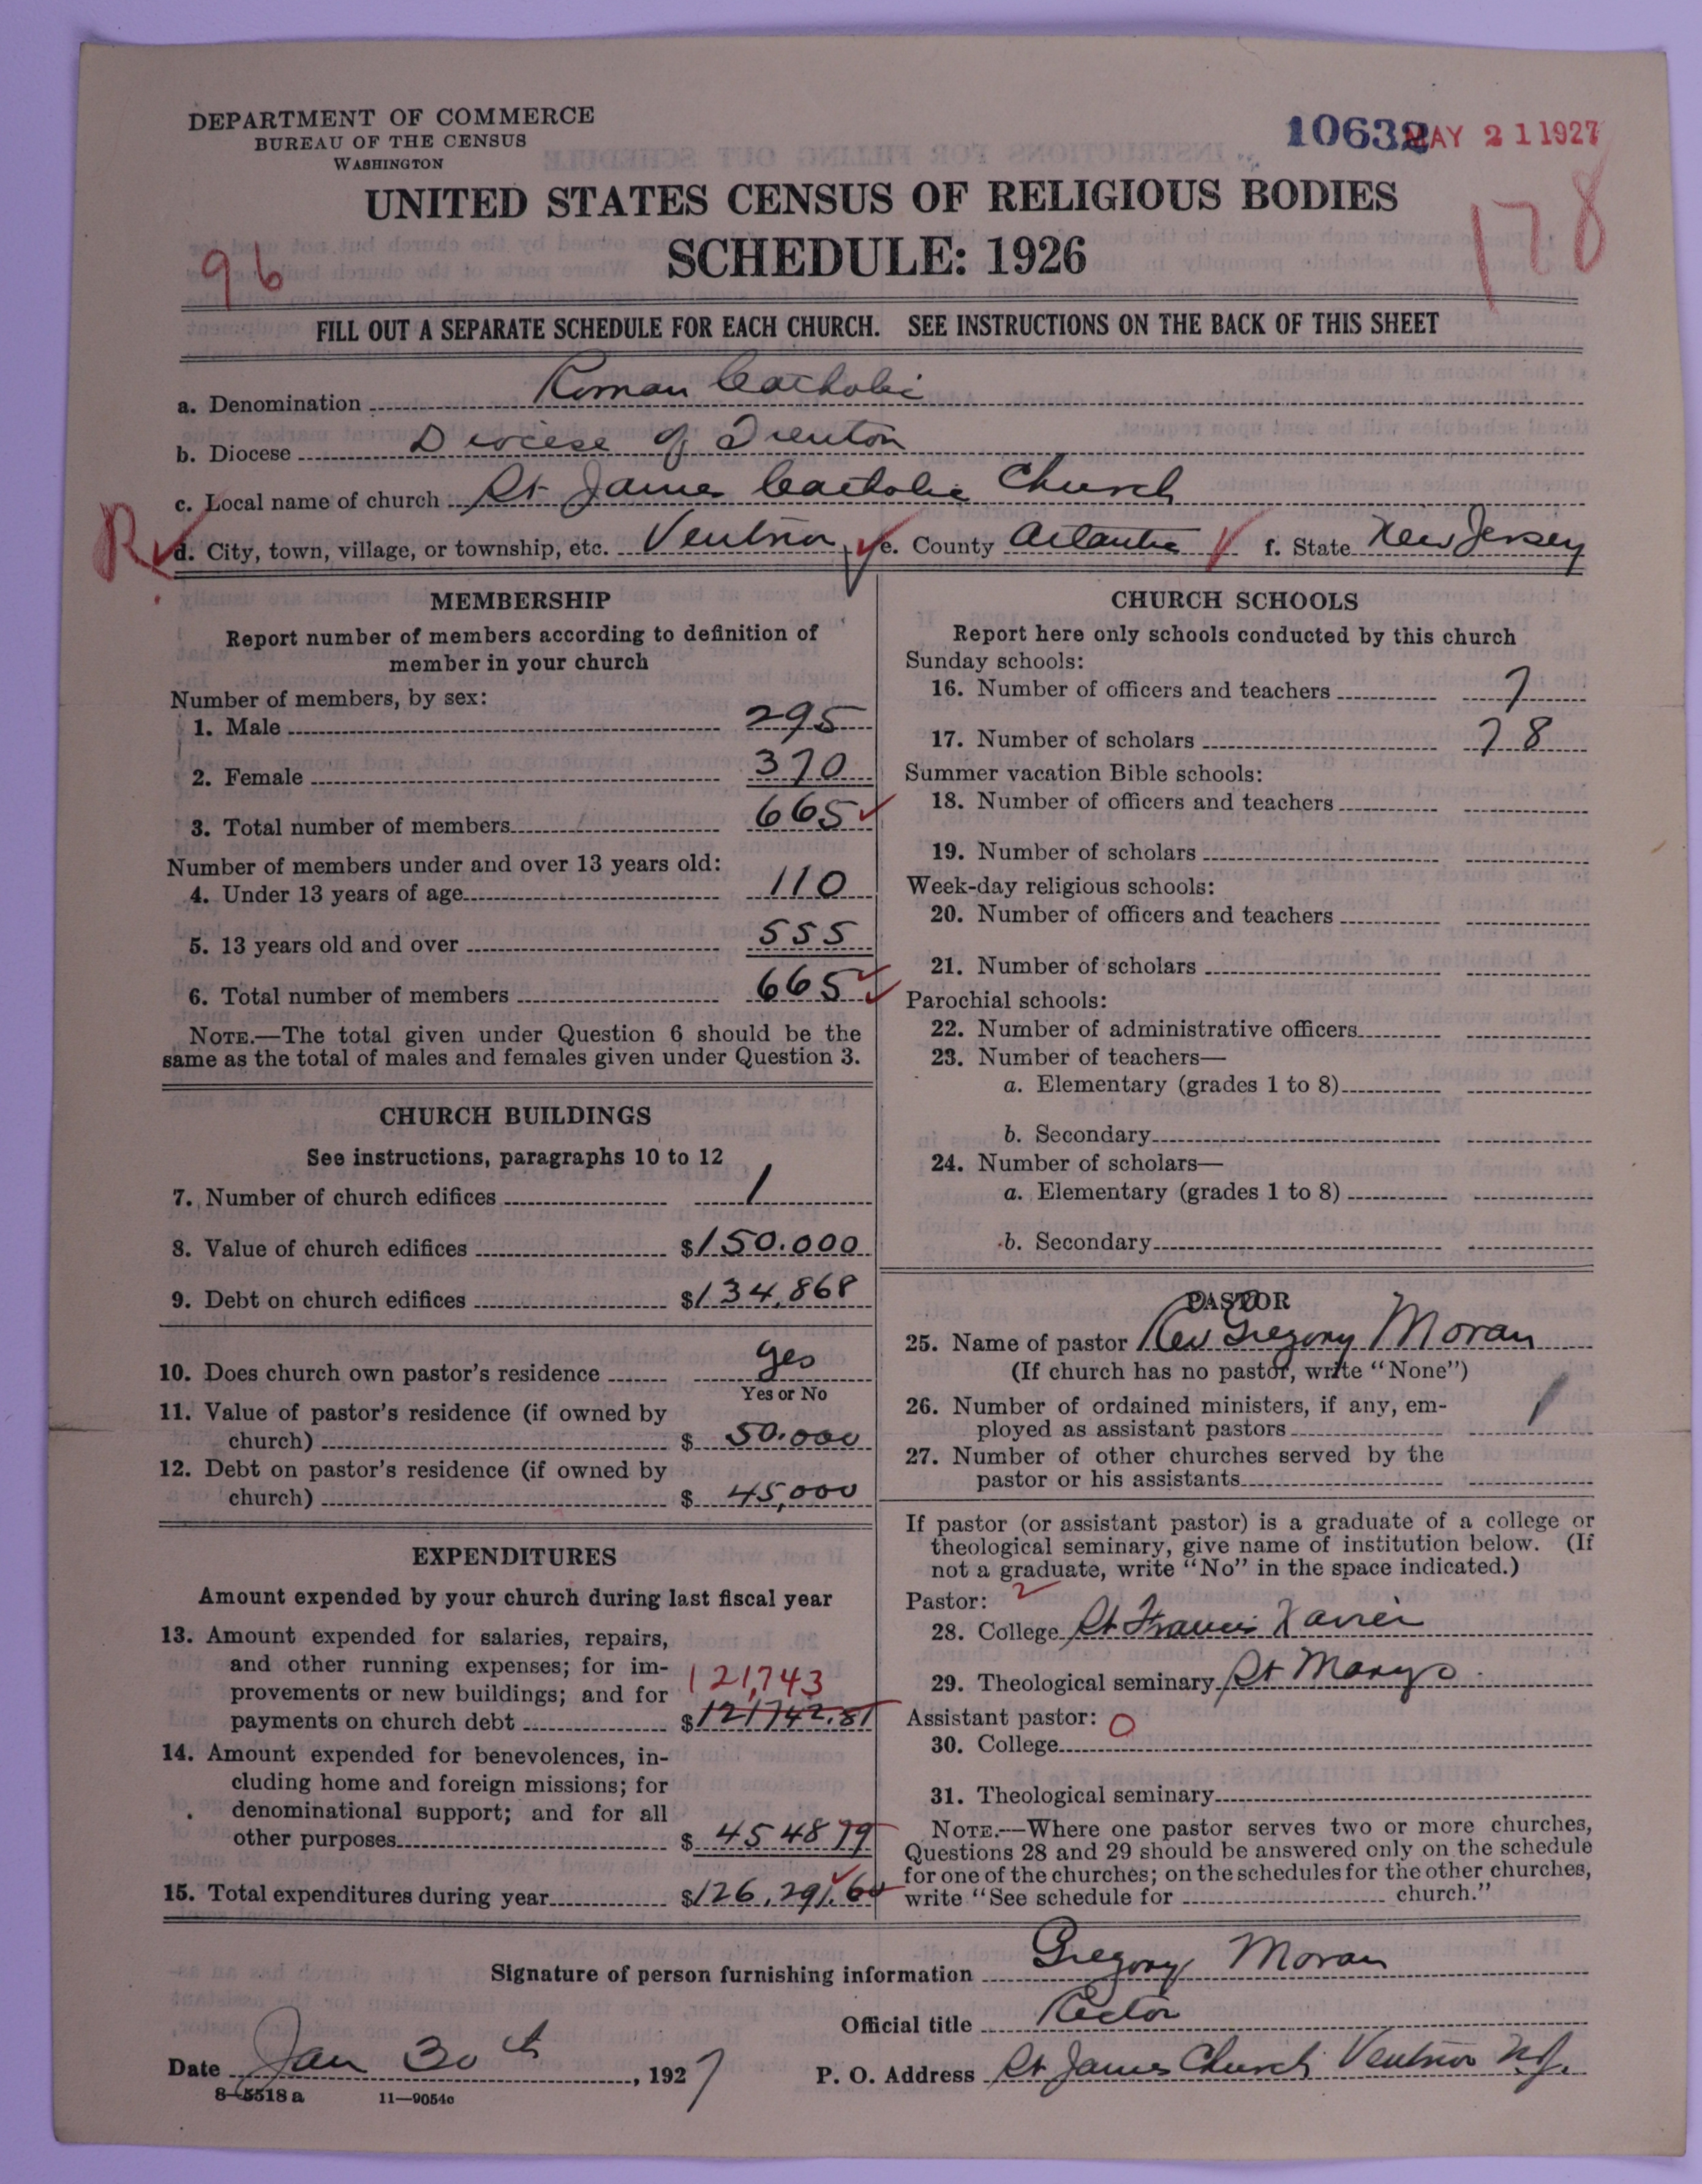 DEPARTMENT OF COMMERCE
BUREAU OF THE CENSUS
WASHINGTON
10632 MAY 21 1927
UNITED STATES CENSUS OF RELIGIOUS BODIES
SCHEDULE: 1926
96
178
FILL OUT A SEPARATE SCHEDULE FOR EACH CHURCH. SEE INSTRUCTIONS ON THE BACK OF THIS SHEET
a. Denomination Roman Catholic
b. Diocese Diocese of Trenton
c. Local name of church St James Catholic Church
R d. City, town, village, or township, etc. Ventnor e. County Atlantic f. State New Jersey
MEMBERSHIP
Report number of members according to definition of
member in your church
Number of members, by sex:
1. Male 295
2. Female 370
3. Total number of members 665
Number of members under and over 13 years old:
4. Under 13 years of age 110
5. 13 years old and over 555
6. Total number of members 665
NOTE.—The total given under Question 6 should be the
same as the total of males and females given under Question 3.
CHURCH BUILDINGS
See instructions, paragraphs 10 to 12
7. Number of church edifices 1
8. Value of church edifices $150.000
9. Debt on church edifices $134,868
10. Does church own pastor's residence yes
Yes or No
11. Value of pastor's residence (if owned by
church) $ 50.000
12. Debt on pastor's residence (if owned by
church) $ 45,000
EXPENDITURES
Amount expended by your church during last fiscal year
13. Amount expended for salaries, repairs,
and other running expenses; for im-
provements or new buildings; and for
121,743
payments on church debt $121742.81
14. Amount expended for benevolences, in-
cluding home and foreign missions; for
denominational support; and for all
other purposes $ 4548 79
15. Total expenditures during year $126,291.60
CHURCH SCHOOLS
Report here only schools conducted by this church
Sunday schools:
16. Number of officers and teachers 7
17. Number of scholars 78
Summer vacation Bible schools:
18. Number of officers and teachers
19. Number of scholars
Week-day religious schools:
20. Number of officers and teachers
21. Number of scholars
Parochial schools:
22. Number of administrative officers
23. Number of teachers—
a. Elementary (grades 1 to 8)
b. Secondary
24. Number of scholars—
a. Elementary (grades 1 to 8)
b. Secondary
PASTOR
25. Name of pastor Rev Gregory Moran
(If church has no pastor, write "None")
26. Number of ordained ministers, if any, em-
ployed as assistant pastors 1
27. Number of other churches served by the
pastor or his assistants
If pastor (or assistant pastor) is a graduate of a college or
theological seminary, give name of institution below. (If
not a graduate, write "No" in the space indicated.)
Pastor: 2
28. College St Francis Xavier
29. Theological seminary St Marys
Assistant pastor: 0
30. College
31. Theological seminary
NOTE.—Where one pastor serves two or more churches,
Questions 28 and 29 should be answered only on the schedule
for one of the churches; on the schedules for the other churches,
write "See schedule for church."
Signature of person furnishing information Gregory Moran
Official title Rector
Date Jan 30th, 1927 P. O. Address St James Church Ventnor N.J.
8-5518 a 11—9054c